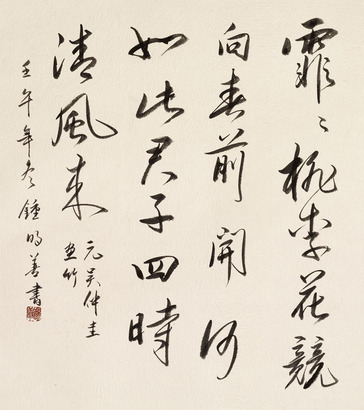 霏〻桃李花競
向春前開何
如此君子四時
清風來
元吴仲圭
画竹
壬午年冬鍾明善書